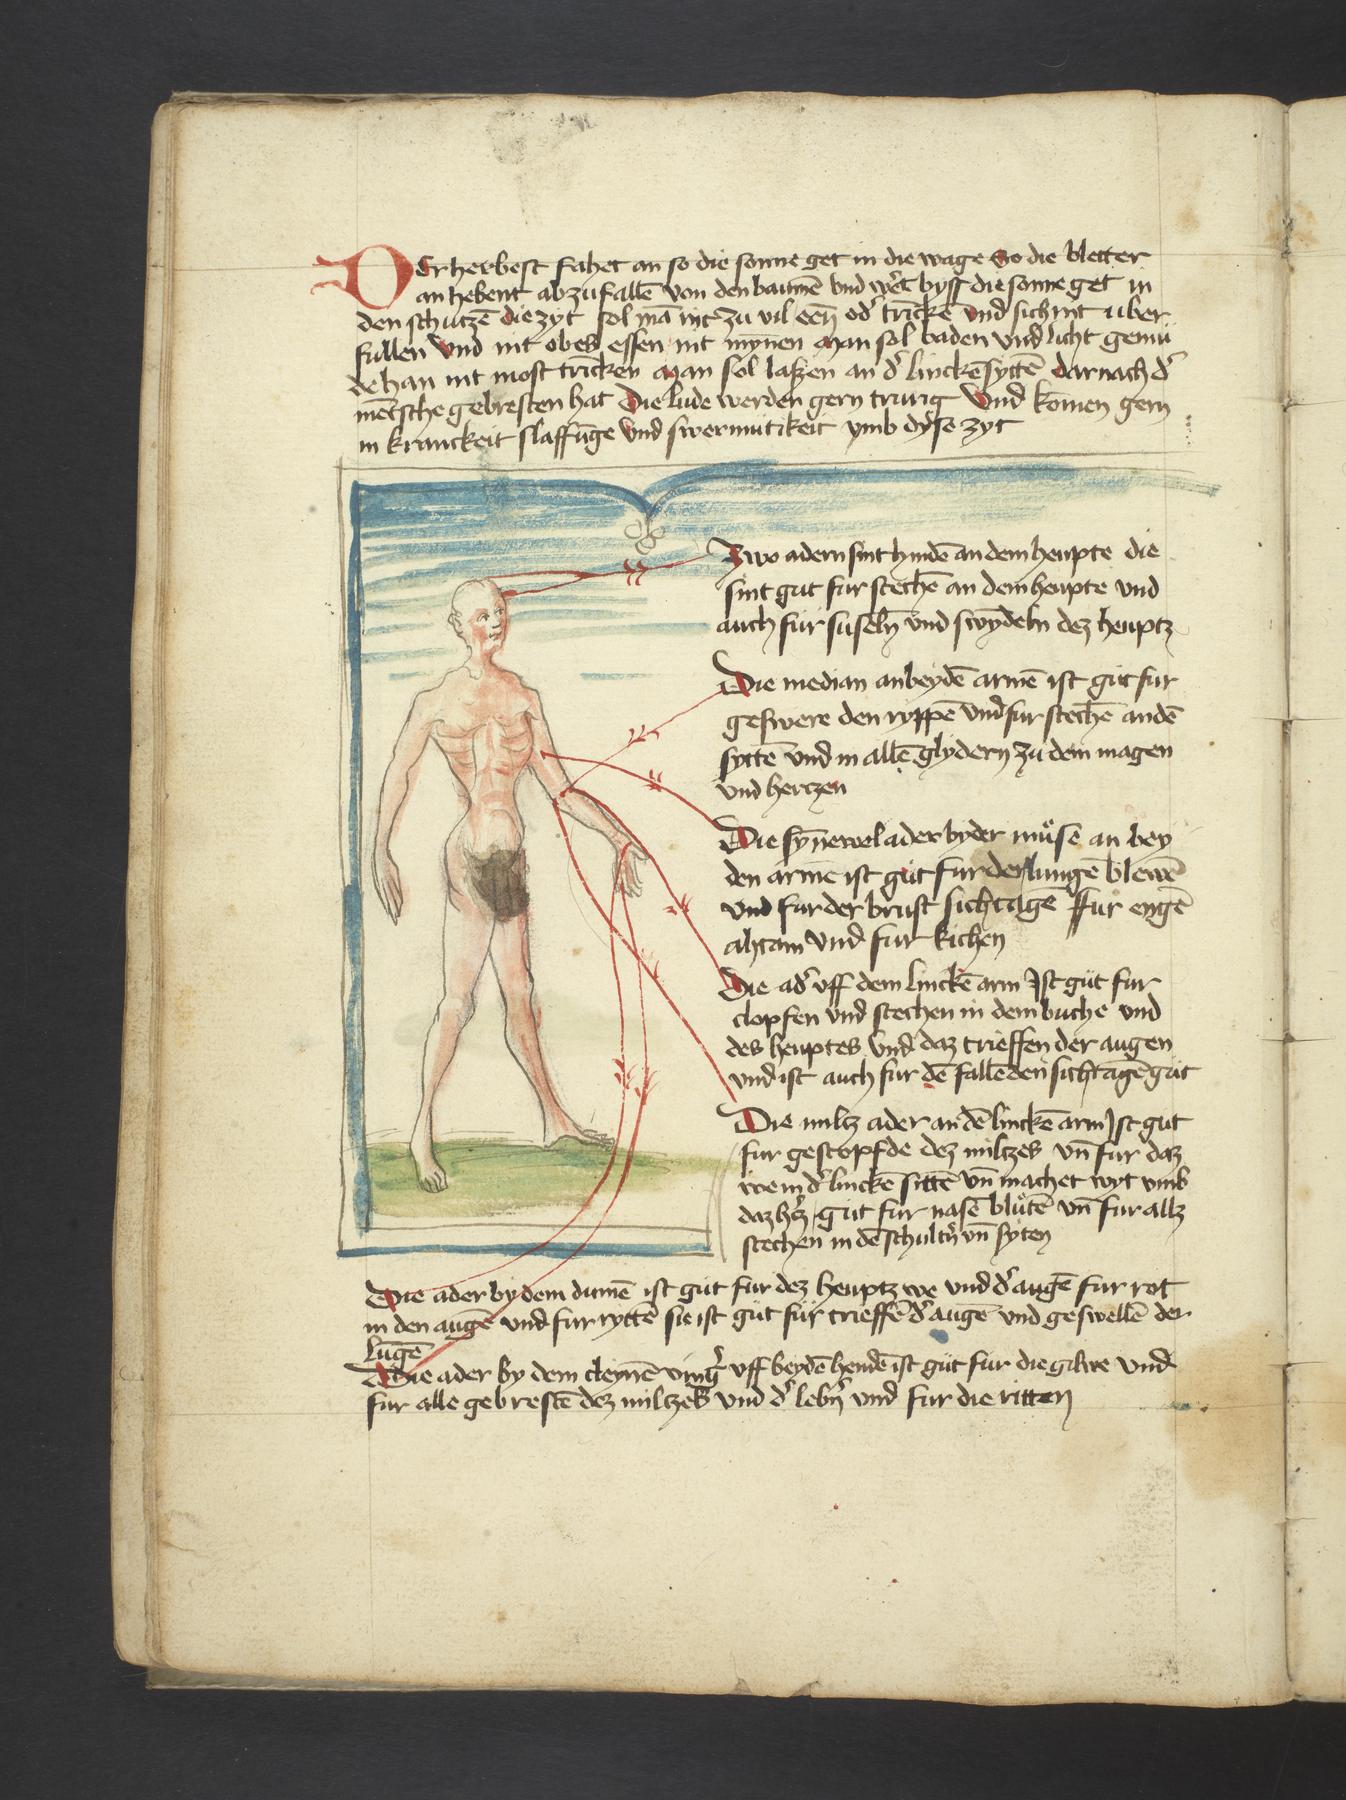 Der herbest fahet an so die sonne get in die wage So die bletter
an hebent abzufallē von den baumē vnd wēt bysz die sonne get in
den schutzē die zyt sol mā nit zu vil eēn od' trīckē vnd sich nit uber
fullen vnd nit obes essen nit mynnen man sol baden vnd licht gemu
de han nit most trīcken man sol laszen an d' linckē syttē dar nach d'
mētsche gebresten hat Die lude werden gern trurig vnd komen gern
in kranckeit slaffūge vnd swermutikeit ymb dyse zyt
Zwo adern sint hindē an dem heupte die
sint gut fur stechē an dem heupte vnd
auch fur suselñ vnd swȳdeln dez heuptz
Die median an beydē armē ist gut fur
geswere den ryppē vnd fur stechē an dē
syttē vnd in allē glydern zu dem magen
vnd hertzen
Die synewel ader by der müse an bey
den armē ist gut fur der lungē blewē
vnd fur der brust sichtagē ffur engē
ahtam vnd fur kichen
Die ad' vff dem linckē arm Ist gut fur
clopfen vnd stechen in dem buche vnd
des heuptes vnd daz trieffen der augen
vnd ist auch fur dē fallēden sichtagē gut
Die miltz ader an dē linckē arm Ist gut
fur gestopfde dez miltzes vñ fur daz
we in d' linckē sittē vñ machet wyt vmb
daz h'tz gut fur nasē blütē vñ fur allz
stechen in dē schult'n vñ syten
Die ader by dem dumē ist gut fur dez heuptz we vnd d' augē fur rot
in den augē vnd fur ryttē sie ist gut fur trieffē d' augē vnd geswellē der
lugē
Die ader by dem cleynē ving' vff beydē hendē ist gut fur die gilwe vnd
fur alle gebrestē dez miltzes vnd d' leb'n vnd fur die ritten